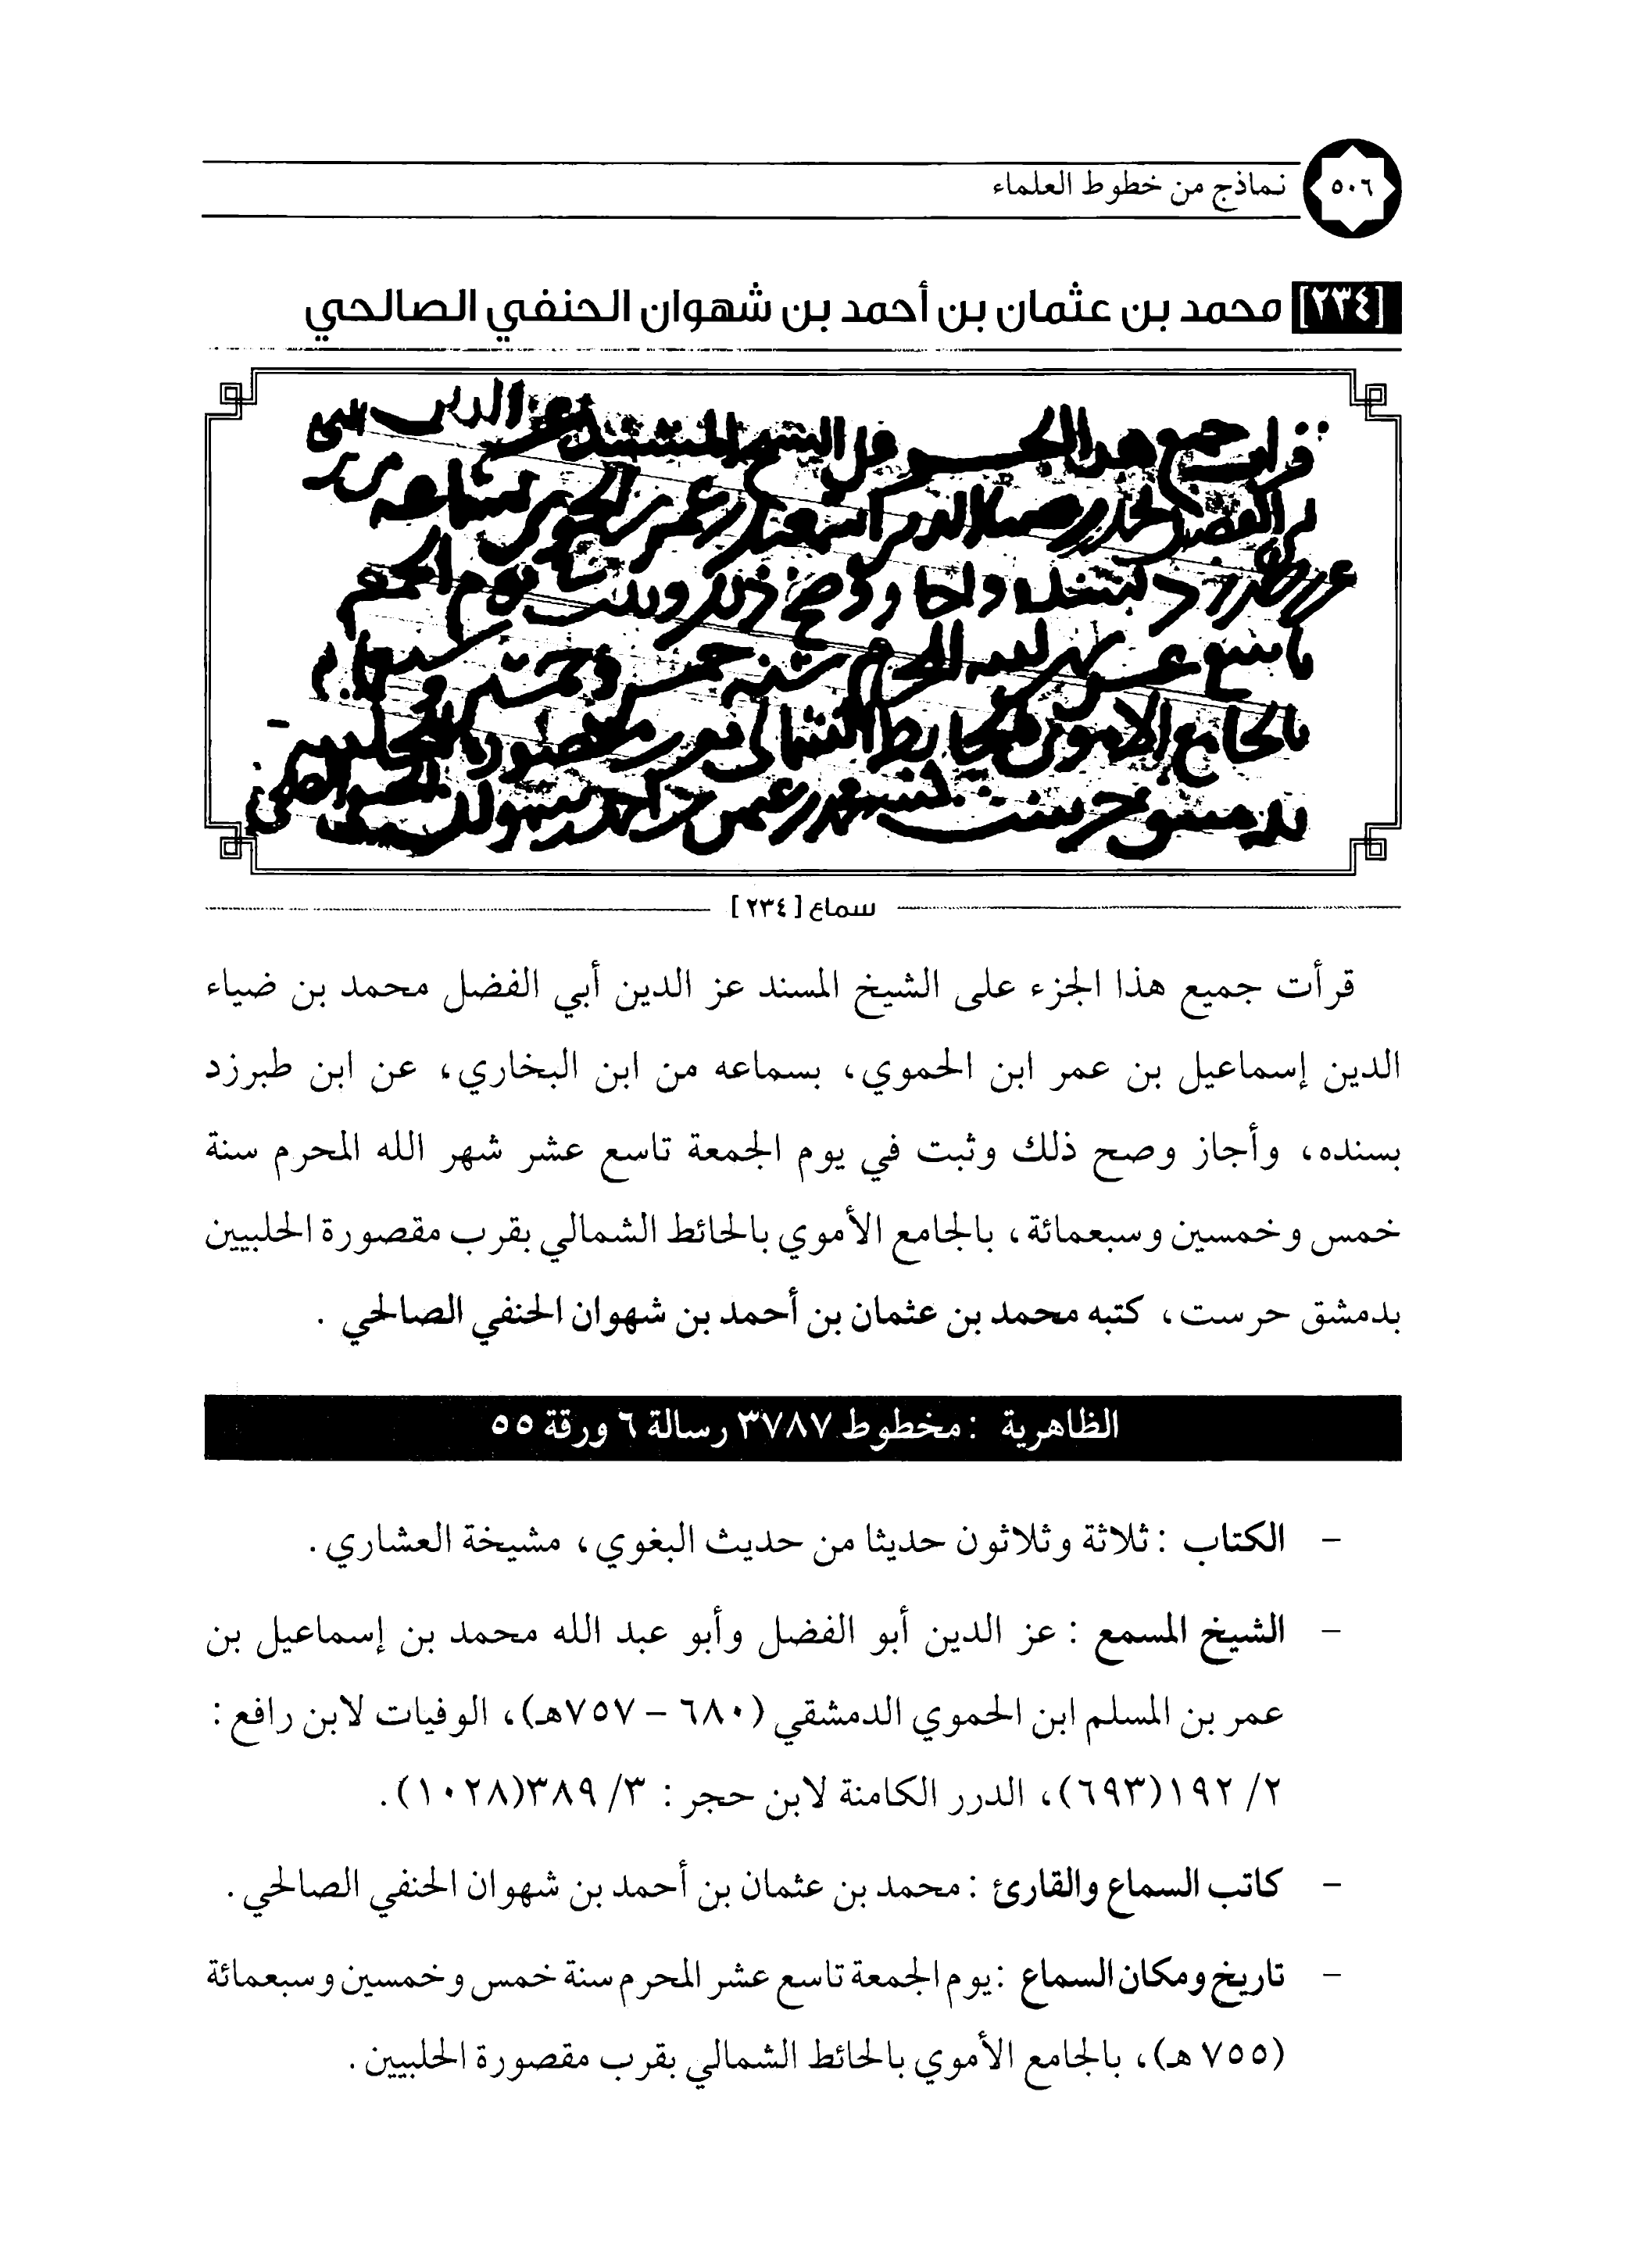 ٥٠٦ نماذج من خطوط العلماء
[٢٣٤] محمد بن عثمان بن أحمد بن شهوان الحنفي الصالحي
سماع [٢٣٤]
قرأت جميع هذا الجزء على الشيخ المسند عز الدين أبي الفضل محمد بن ضياء
الدين إسماعيل بن عمر ابن الحموي، بسماعه من ابن البخاري، عن ابن طبرزد
بسنده، وأجاز وصح ذلك وثبت في يوم الجمعة تاسع عشر شهر الله المحرم سنة
خمس وخمسين وسبعمائة، بالجامع الأموي بالحائط الشمالي بقرب مقصورة الحلبيين
بدمشق حرست، كتبه محمد بن عثمان بن أحمد بن شهوان الحنفي الصالحي .
الظاهرية : مخطوط ٣٧٨٧ رسالة ٦ ورقة ٥٥
- الكتاب : ثلاثة وثلاثون حديثا من حديث البغوي، مشيخة العشاري.
- الشيخ المسمع : عز الدين أبو الفضل وأبو عبد الله محمد بن إسماعيل بن
عمر بن المسلم ابن الحموي الدمشقي (٦٨٠ - ٧٥٧هـ)، الوفيات لابن رافع :
٢/ ١٩٢(٦٩٣)، الدرر الكامنة لابن حجر : ٣/ ٣٨٩(١٠٢٨).
- كاتب السماع والقارئ : محمد بن عثمان بن أحمد بن شهوان الحنفي الصالحي .
- تاريخ ومكان السماع : يوم الجمعة تاسع عشر المحرم سنة خمس وخمسين وسبعمائة
(٧٥٥ هـ)، بالجامع الأموي بالحائط الشمالي بقرب مقصورة الحلبيين .